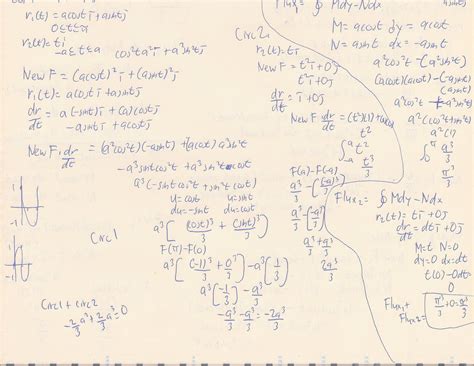 r₁(t) = acost i + asint j
0≤t≤π
r₂(t) = ti
-a≤t≤a
cos²t a² i + a² sin²t j
New F = (acost)² i + (asint)² j
r₁(t) = acost i + asint j
dr/dt = a(-sint) i + (a)cost j
-asint i + acost j
New F₁ dr/dt = (a²cos²t)(-asint) + (acost) a² sin²t
-a³sintcos²t + a³sin²t cost
a³(-sintcos²t + sin²t cost)
u=cost u=sint
du=-sint du=cost
a³[(cost)³/3 + (sint)³/3]
F(π)-F(0)
a³[(-1)³/3 + 0³] - a³[1/3]
a³[-1/3] - a³/3
-a³/3 - a³/3 = -2a³/3
-1
-1
Circ1
Circ1 + Circ2
-2/3 a³ + 2/3 a³ = 0
Circ2:
r₂(t) = ti
New F = t² i + 0j
t² i + 0j
dr/dt = i + 0j
New F₁ dr/dt = (t²)(1) +
t²
∫ t²
a
-a
t³/3
F(a)-F(-a)
a³/3 - [(-a)³/3]
a³/3 - [-a³/3]
a³/3 + a³/3
2a³/3
Flux₁ = ∮ Mdy - Ndx
M = acost dy = acost
N = asint dx = -asint
a²cos²t - (-a²sin²t)
(acost)(acost) - (-asint)
a²cos²t + a²
a²(cos²t + sin²t)
a²(1)
∫ a²
π
0
Flux₂ = ∮ Mdy - Ndx
r₂(t) = ti + 0j
dr/dt = i + 0j
M=t N=0
dy=0 dx=dt
t(0) - 0dt
0
Flux₁ +
Flux₂ =